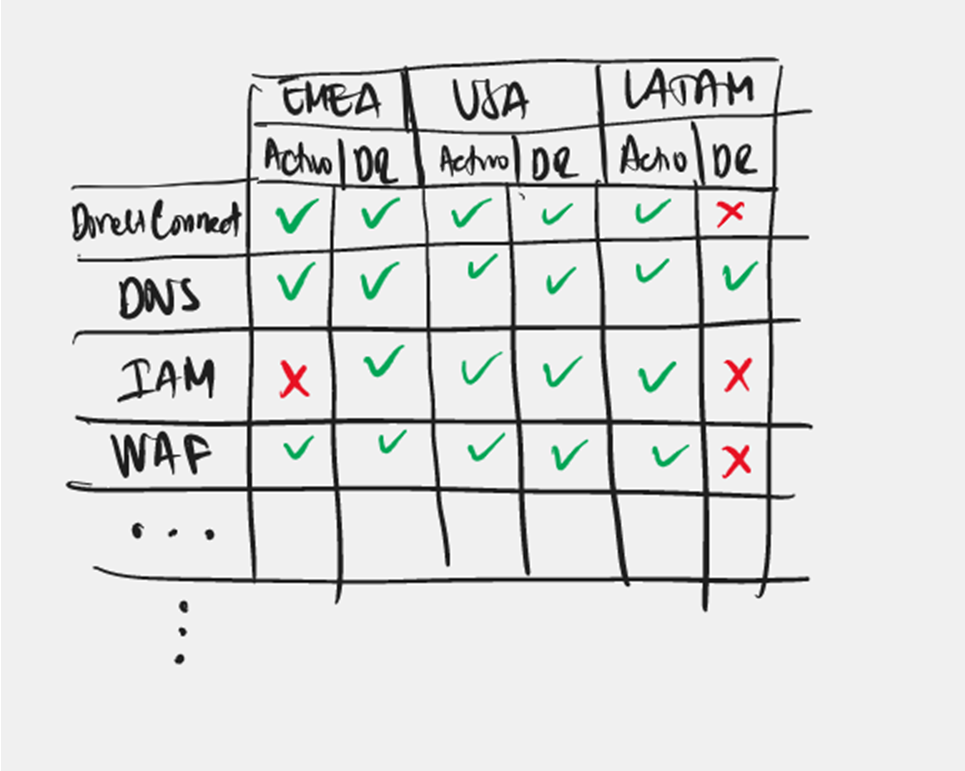 EMEA USA LATAM
Activo DR Activo DR Activo DR
Direct Connect ✓ ✓ ✓ ✓ ✓ ✗
DNS ✓ ✓ ✓ ✓ ✓ ✓
IAM ✗ ✓ ✓ ✓ ✓ ✗
WAF ✓ ✓ ✓ ✓ ✓ ✗
...